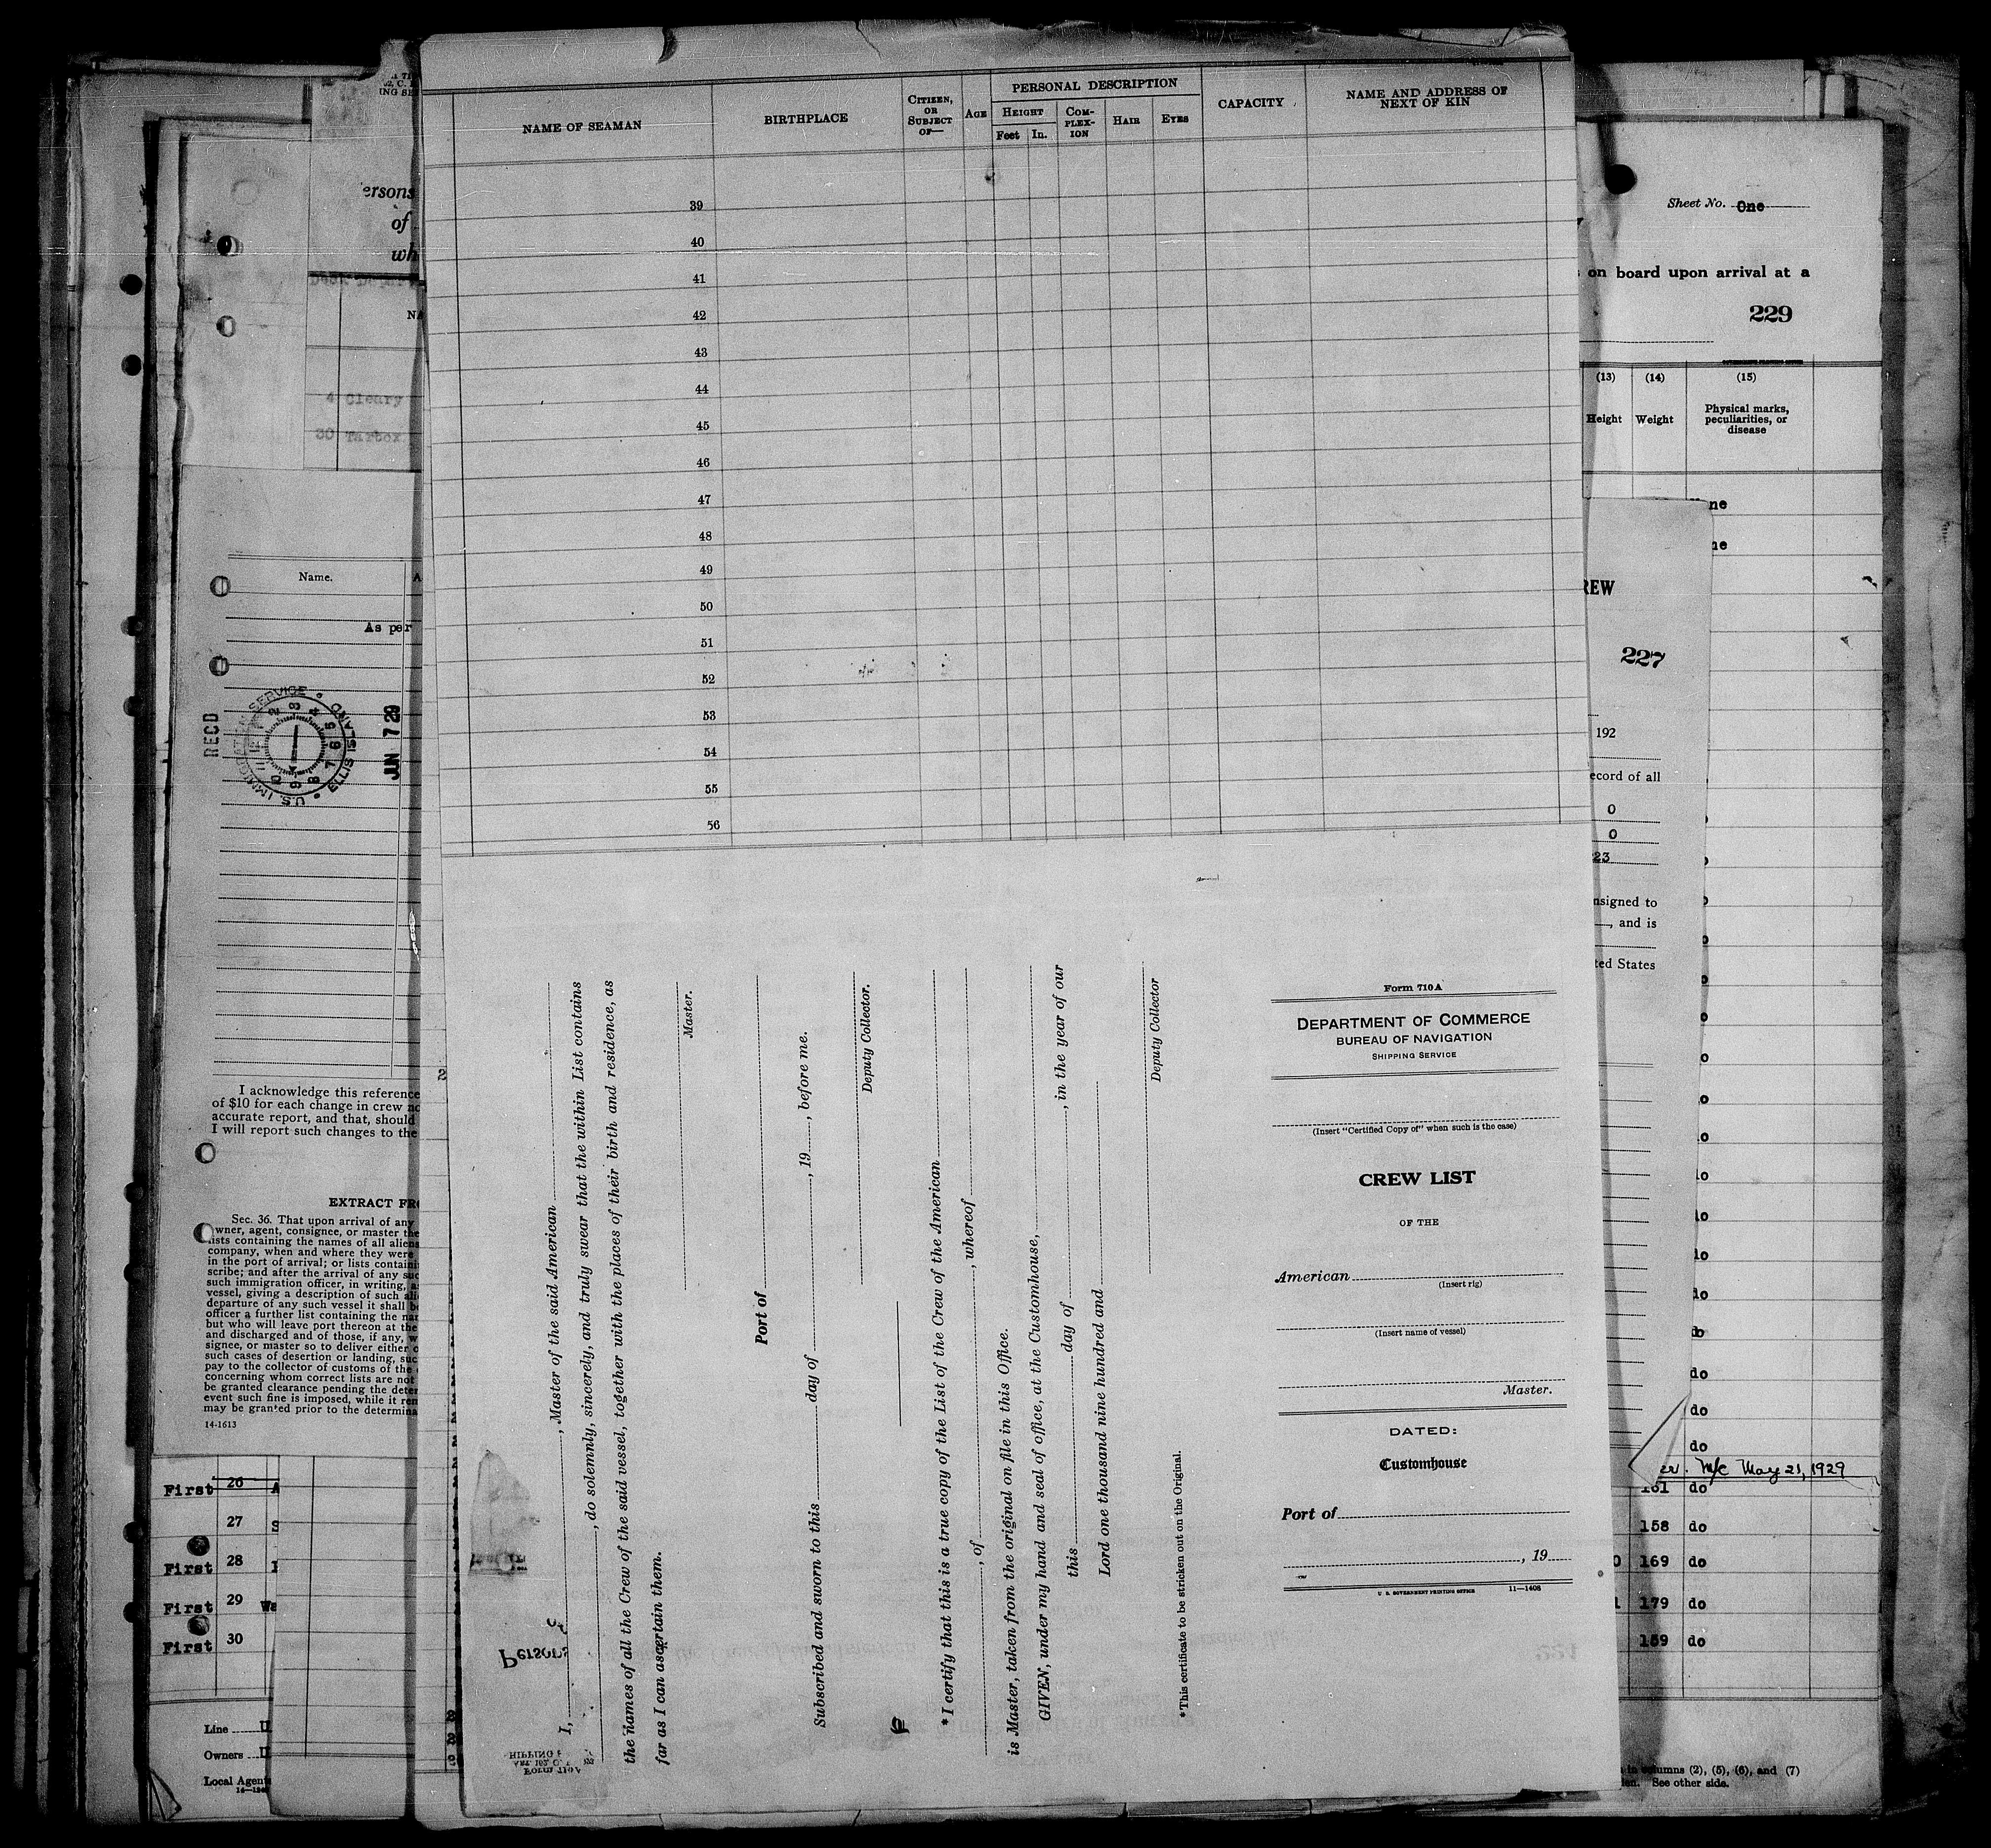 NAME OF SEAMAN
BIRTHPLACE
CITIZEN, OR SUBJECT OF—
AGE
PERSONAL DESCRIPTION
HEIGHT
Feet In.
COM-PLEX-ION
HAIR
EYES
CAPACITY
NAME AND ADDRESS OF NEXT OF KIN
39
40
41
42
43
44
45
46
47
48
49
50
51
52
53
54
55
56
I, , Master of the said American
, do solemnly, sincerely, and truly swear that the within List contains
the names of all the Crew of the said vessel, together with the places of their birth and residence, as
far as I can ascertain them.
Master.
Port of
Subscribed and sworn to this day of , 19 , before me.
Deputy Collector.
*I certify that this is a true copy of the List of the Crew of the American
, of , whereof
is Master, taken from the original on file in this Office.
GIVEN, under my hand and seal of office, at the Customhouse,
this day of , in the year of our
Lord one thousand nine hundred and
Deputy Collector
*This certificate to be stricken out on the Original.
Form 710A
DEPARTMENT OF COMMERCE
BUREAU OF NAVIGATION
SHIPPING SERVICE
(Insert "Certified Copy of" when such is the case)
CREW LIST
OF THE
American
(Insert rig)
(Insert name of vessel)
Master.
DATED:
Customhouse
Port of
, 19
U. S. GOVERNMENT PRINTING OFFICE 11—1408
ersons
of
wh
4 Cleary
30 Tarbox
Name.
As per
RECD
U.S. IMMIGRATION SERVICE • ELLIS ISLAND •
JUN 7 29
I acknowledge this reference
of $10 for each change in crew no
accurate report, and that, should
I will report such changes to the
EXTRACT FRO
Sec. 36. That upon arrival of any
owner, agent, consignee, or master the
lists containing the names of all aliens
company, when and where they were
in the port of arrival; or lists containi
scribe; and after the arrival of any suc
such immigration officer, in writing, a
vessel, giving a description of such ali
departure of any such vessel it shall b
officer a further list containing the na
but who will leave port thereon at the
and discharged and of those, if any, w
signee, or master so to deliver either o
such cases of desertion or landing, suc
pay to the collector of customs of the
concerning whom correct lists are not
be granted clearance pending the deter
event such fine is imposed, while it rem
may be granted prior to the determina
14-1613
First 26 A
27 S
First 28
First 29 Wa
First 30
Line U
Owners U
Local Agent
Sheet No. One
on board upon arrival at a
229
(13) (14) (15)
Height Weight Physical marks, peculiarities, or disease
ne
ne
REW
227
192
ecord of all
0
0
23
nsigned to
, and is
ted States
do
do
do
er. M/c May 21, 1929
161 do
158 do
0 169 do
1 179 do
159 do
in columns (2), (5), (6), and (7)
en. See other side.